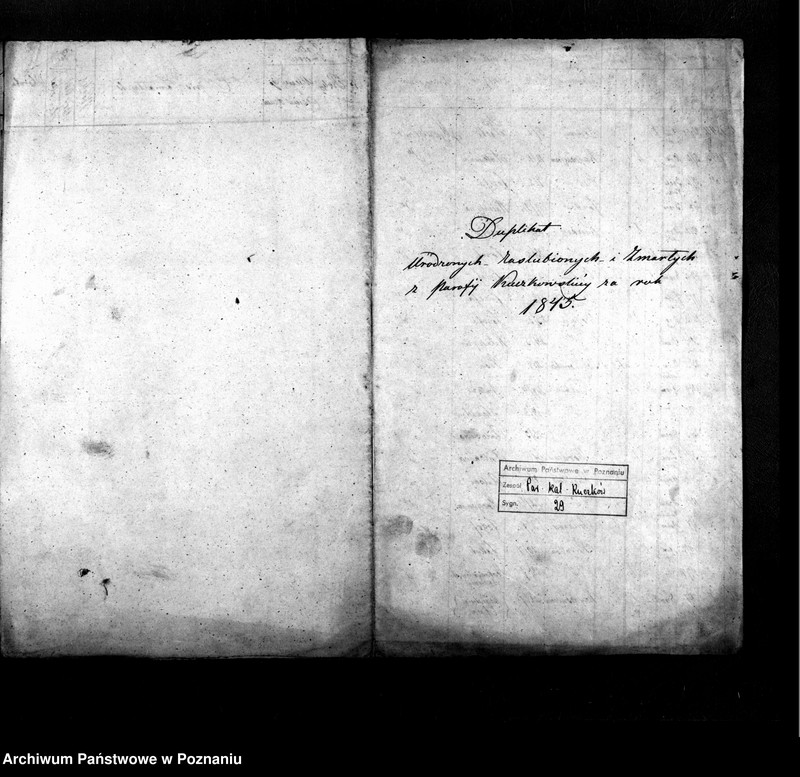 Duplikat
Urodzonych - Zaslubionych - i Zmarłych
z Parafij Kuczkowskiéy za rok
1845.
Archiwum Państwowe w Poznaniu
Zespół Par. kat. Kuczków
Sygn. 29
Archiwum Państwowe w Poznaniu